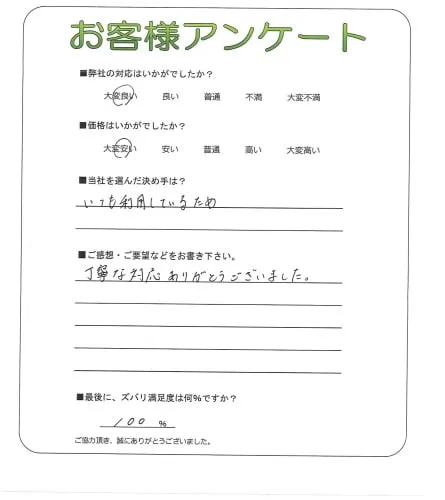 お客様アンケート
■弊社の対応はいかがでしたか？
大変良い 良い 普通 不満 大変不満
■価格はいかがでしたか？
大変安い 安い 普通 高い 大変高い
■当社を選んだ決め手は？
いつも利用しているため
■ご感想・ご要望などをお書き下さい。
丁寧な対応ありがとうございました。
■最後に、ズバリ満足度は何%ですか？
100 %
ご協力頂き、誠にありがとうございました。